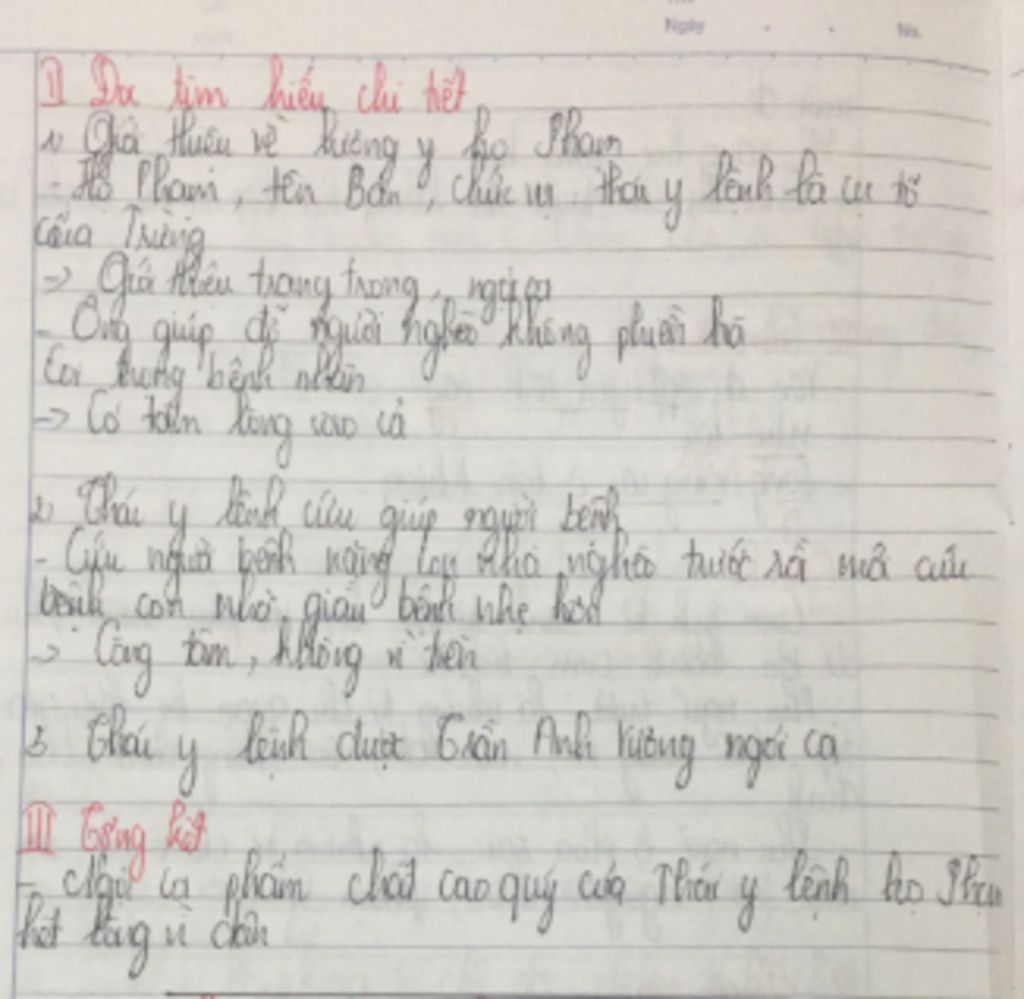 Ngày No.
II Đọc tìm hiểu chi tiết
1) Giới thiệu về lương y họ Phạm
- Họ Phạm, tên Bân, chức vụ thái y lệnh là cụ tổ
của Trừng
-> Giới thiệu trang trọng, ngợi ca
- Ông giúp đỡ người nghèo không phiền hà
Coi trọng bệnh nhân
-> Có tấm lòng cao cả
2) Thái y lệnh cứu giúp người bệnh
- Cứu người bệnh nặng nhà nghèo trước rồi mới cứu
bệnh con nhà giàu bệnh nhẹ hơn
-> Công tâm, không vì tiền
3 Thái y lệnh được Trần Anh Vương ngợi ca
III Tổng kết
- Ngợi ca phẩm chất cao quý của Thái y lệnh họ Phạm
hết lòng vì dân